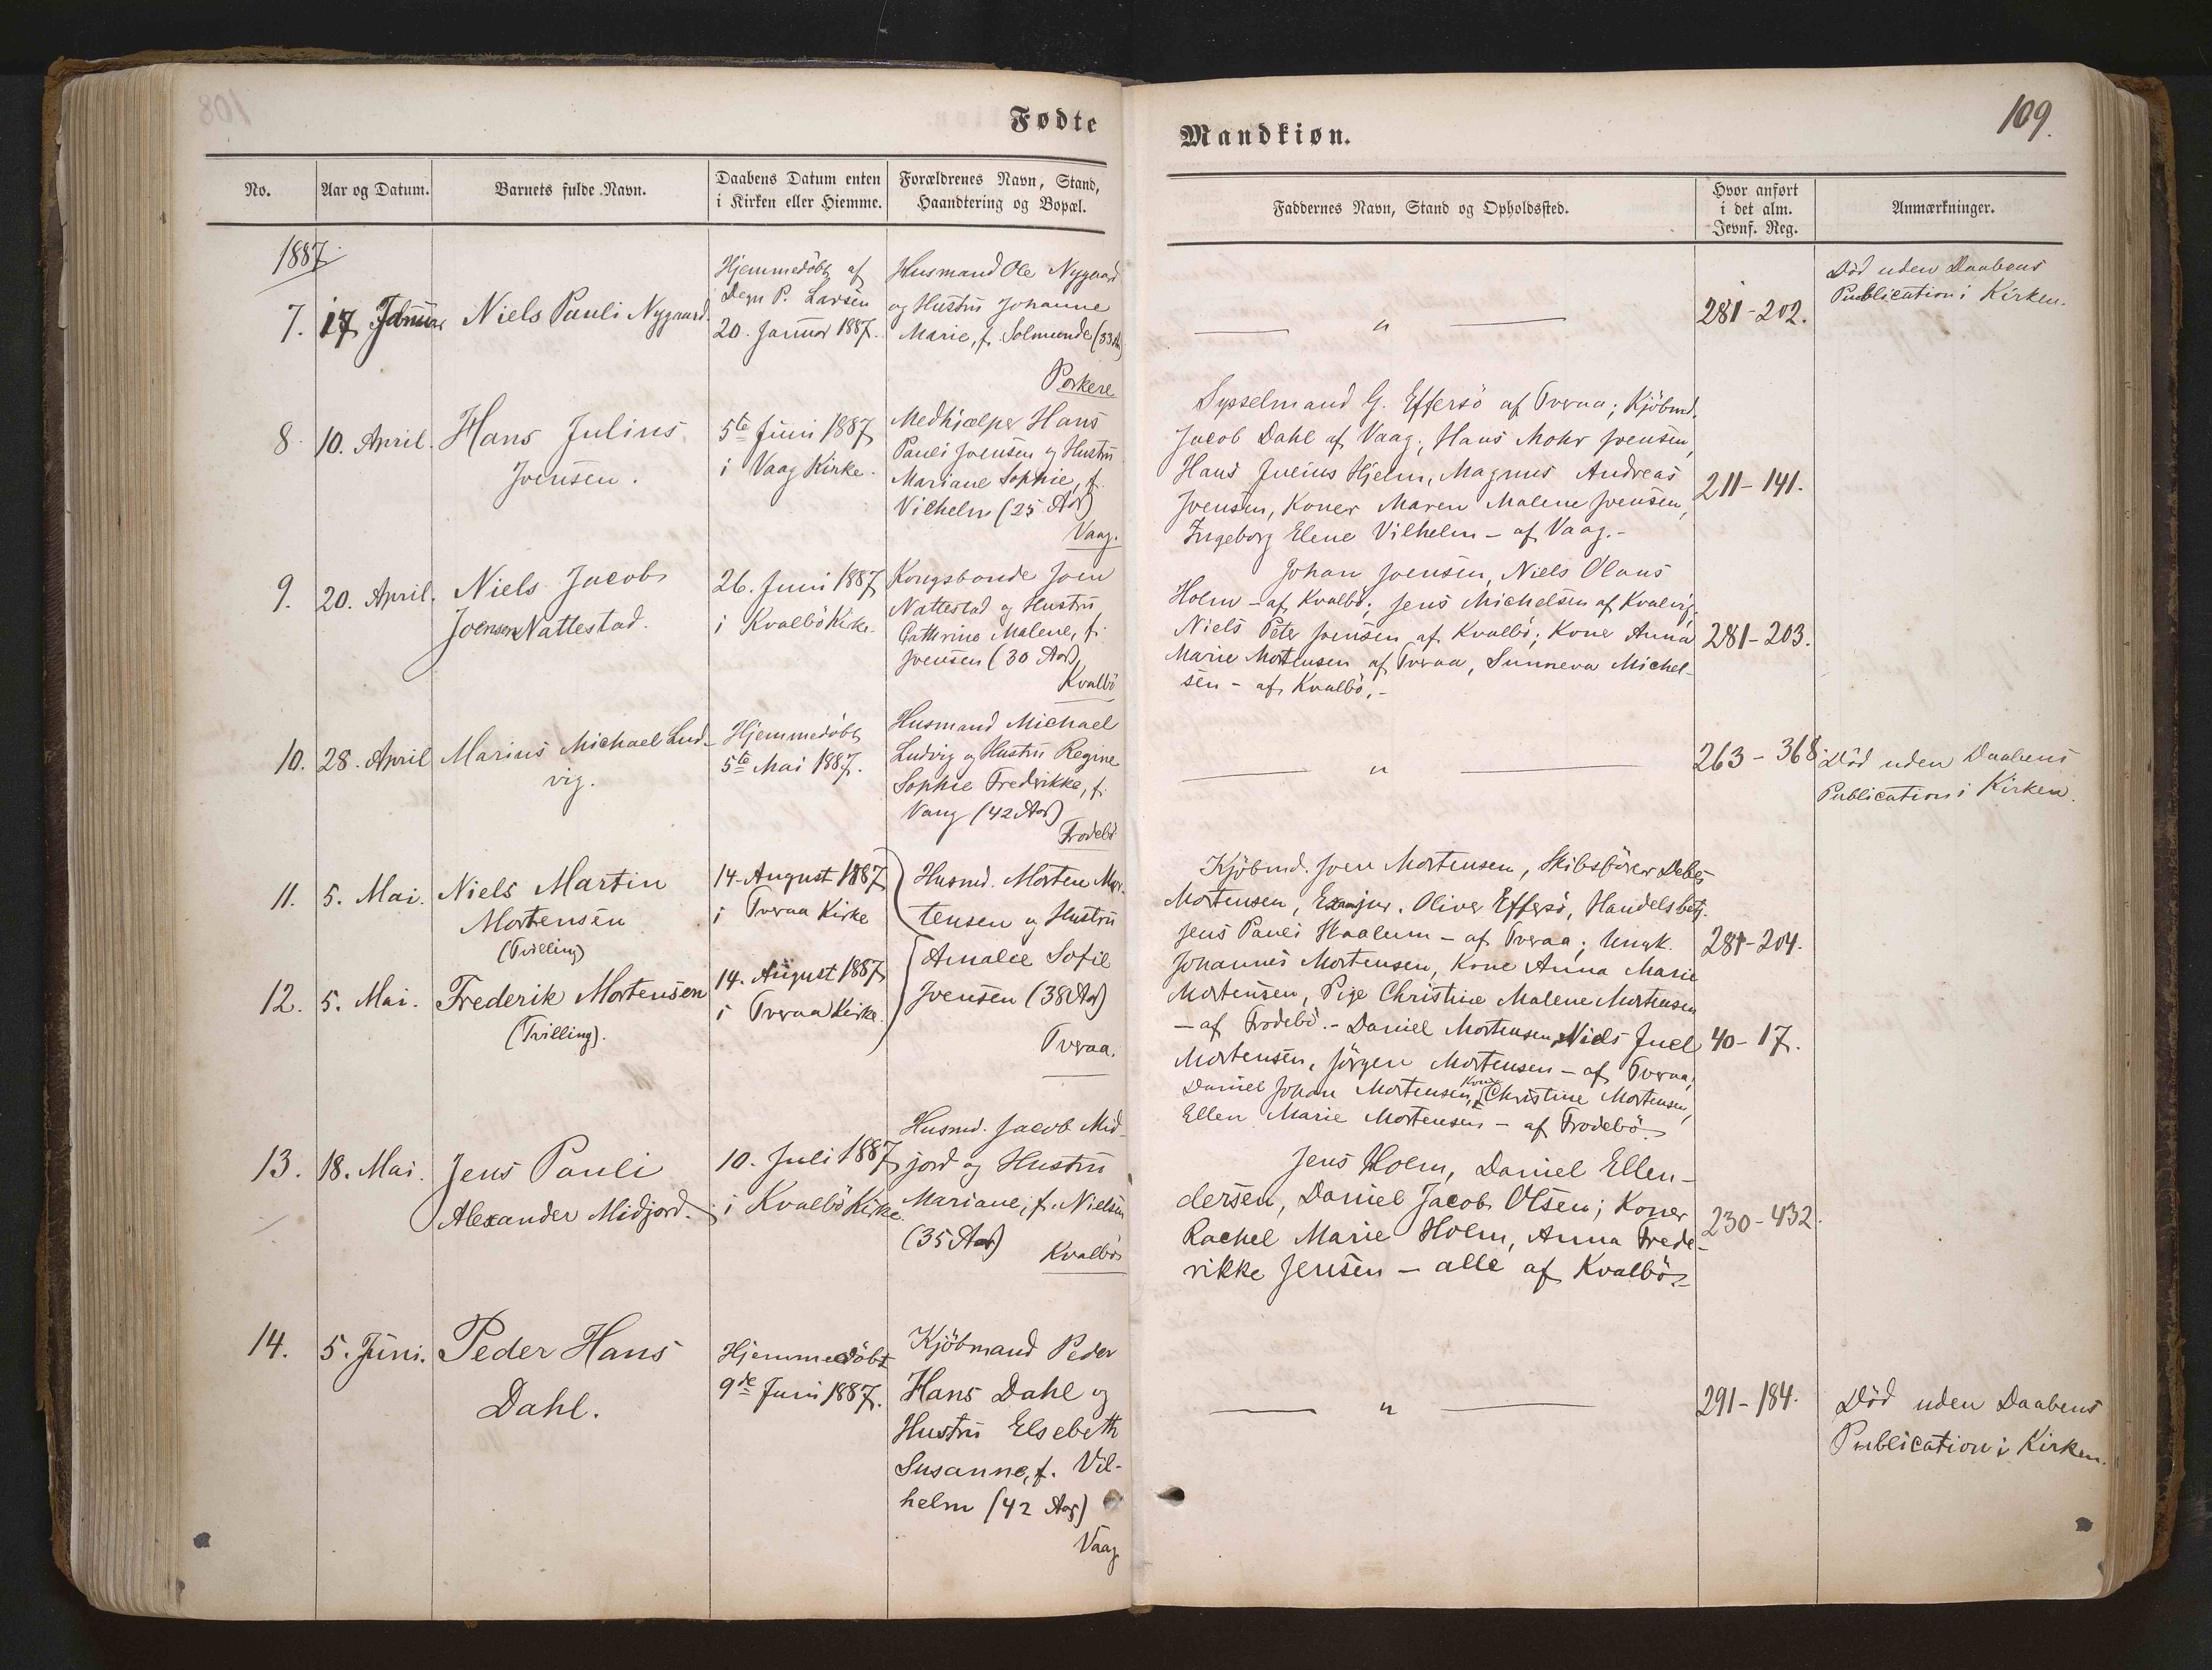 Fødte
No.
Aar og Datum.
Barnets fulde Navn.
Daabens Datum enten
i Kirken eller Hiemme.
Forældrenes Navn, Stand,
Haandtering og Bopæl.
1887.
7.
17
Niels Pauli Nygaard.
Hjemmedöbt af
Degn P. Larsen
20. Januar 1887.
Husmand Ole Nygaard
og Hustru Johanne
Marie, f. Solmunde (33 Aar)
Porkere
8.
10. April.
Hans Julius
Joensen.
5te Juni 1887
i Vaag Kirke.
Medhjælper Hans
Pauli Joensen og Hustru
Mariane Sophie, f.
Vilhelm (25 Aar)
Vaag.
9.
20. April.
Niels Jacob
Joensen Nattestad.
26. Juni 1887
i Kvalbö Kirke.
Kongsbonde Joen
Nattestad og Hustru
Cathrine Malene, f.
Joensen (30 Aar)
Kvalbö
10.
28. April
Marius Michael Lud-
vig.
Hjemmedöbt
5te Mai 1887.
Husmand Michael
Ludvig og Hustru Regine
Sophie Fredrikke, f.
Vang (42 Aar)
Frodebö
11.
5. Mai.
Niels Martin
Mortensen
(Tvilling)
14. August 1887
i Tveraa Kirke
Husmd. Morten Mor-
tensen og Hustru
Amalie Sofie
Joensen (38 Aar)
Tveraa.
12.
5. Mai.
Frederik Mortensen
(Tvilling).
14. August 1887
i Tveraa Kirke.
13.
18. Mai.
Jens Pauli
Alexander Midjord.
10. Juli 1887
i Kvalbö Kirke.
Husmd. Jacob Mid-
jord og Hustru
Mariane, f. Nielsen
(35 Aar)
Kvalbö
14.
5. Juni.
Peder Hans
Dahl.
Hjemmedöbt
9de Juni 1887.
Kjöbmand Peder
Hans Dahl og
Hustru Elsebeth
Susanne, f. Vil-
helm (42 Aar)
Vaag
Mandkiøn.
109.
Faddernes Navn, Stand og Opholdssted.
Hvor anført
i det alm.
Jevnf. Reg.
Anmærkninger.
— " —
281-202.
Död uden Daabens
Publication i Kirken.
Sysselmand G. Effersö af Tveraa; Kjöbmd.
Jacob Dahl af Vaag; Hans Mohr Joensen,
Hans Julius Hjelm, Magnus Andreas
Joensen, Koner Maren Malene Joensen,
Ingeborg Elene Vilhelm - af Vaag.-
211-141.
Johan Joensen, Niels Olaus
Holm - af Kvalbö; Jens Michelsen af Kvalvig,
Niels Peter Joensen af Kvalbö; Kone Anna
Marie Mortensen af Tveraa, Sunneva Michel-
sen - af Kvalbö.-
281-203.
— " —
263-368.
Död uden Daabens
Publication i Kirken.
Kjöbmd. Joen Mortensen, Skibsförer Debes
Mortensen, Examjur. Oliver Effersö, Handelsbetj.
Jens Pauli Haalum - af Tveraa; Ungk.
Johannes Mortensen, Kone Anna Marie
Mortensen, Pige Christine Malene Mortensen
- af Frodebö.- Daniel Mortensen, Niels Juel
Mortensen, Jörgen Mortensen - af Tveraa;
Daniel Johan Mortensen, Kone Christine Mortensen,
Ellen Marie Mortensen - af Frodebö.
281-204.
40-17.
Jens Holm, Daniel Ellen-
dersen, Daniel Jacob Olsen; Koner
Rachel Marie Holm, Anna Frede-
rikke Jensen - alle af Kvalbö.-
230-432.
— " —
291-184.
Död uden Daabens
Publication i Kirken.